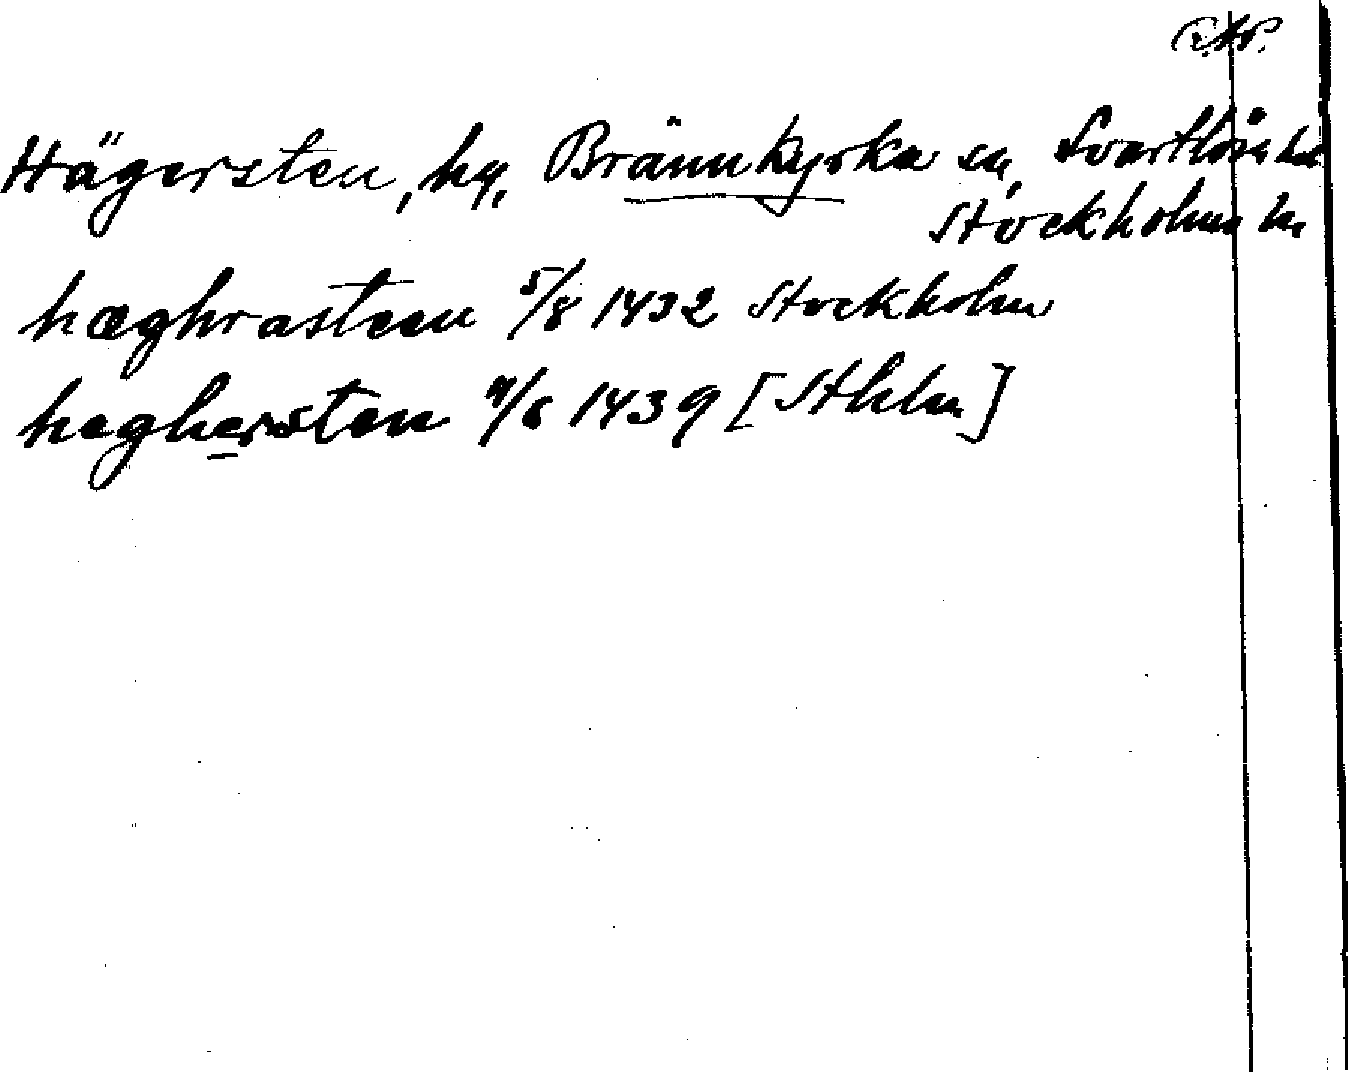 Hägersten, hg, Brännkyrka sn, Svartlösa hd
Stockholms ln
hæghrasteen 5/8 1432 Stockholm
heghersten 4/6 1439 [Sthlm]